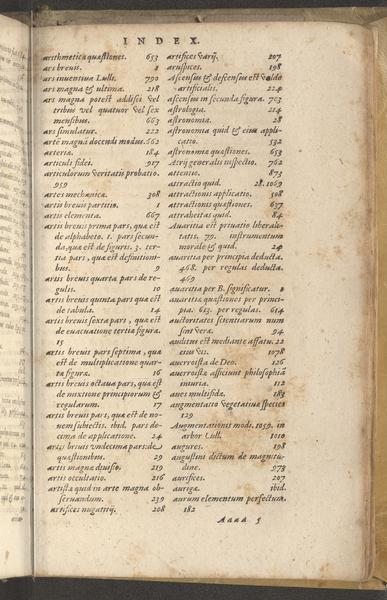 INDEX.
arithmeticæ quæstiones. 653
ars brevis. 2
ars inventiva Lulli. 790
ars magna & ultima. 218
ars magna potest addisci vel
tribus vel quatuor vel sex
mensibus. 663
ars simulatur. 222
arte magna docendi modus. 662
arteria. 184
articuli fidei. 917
articulorum veritatis probatio.
959
artes mechanicæ. 308
artis brevis partitio. 1
artis elementa. 667
artis brevis prima pars, quæ est
de alphabeto. 1. pars secun-
da, quæ est de figuris. 3. ter-
tia pars, quæ est definitioni-
bus. 9
artis brevis quarta pars de re-
gulis. 10
artis brevis quinta pars quæ est
de tabula. 14
artis brevis sexta pars, quæ est
de evacuatione tertiæ figuræ.
15
artis brevis pars septima, quæ
est de multiplicatione quar-
tæ figuræ. 16
artis brevis octava pars, quæ est
de mixtione principiorum &
regularum. 17
artis brevis pars, quæ est de no-
vem subiectis. ibid. pars de-
cima de applicatione. 24
artis brevis undecima pars: de
quæstionibus. 29
artis magnæ divisio. 219
artis occultatio. 216
artista quid in arte magna ob-
servandum. 239
artifices nugatorij. 208
artifices varij. 207
aruspices. 198
Ascensus & descensus est valde
artificialis. 224
ascensus in secunda figura. 703
astrologia. 214
astronomia. 28
astronomia quid & eius appli-
catio. 532
astronomiæ quæstiones. 653
Atrij generalis inspectio. 762
attentio. 873
attractio quid. 28. 1069
attractionis applicatio. 508
attractionis quæstiones. 637
attrahetas quid. 84
Avaritia est privatio liberali-
tatis. 79. instrumentum
morale & quid. 24
avaritia per principia deducta.
468. per regulas deducta.
469
avaritia per B. significatur. 2
avaritiæ quæstiones per princi-
pia. 613. per regulas. 614
auctoritates scientiarum num
sint veræ. 94
auditus est mediante affatu. 22
eius vis. 1078
averroistæ de Deo. 126
averroistæ afficiunt philosophiã
iniuria. 112
aves multifidæ. 183
augmentatio vegetativæ speciei
129
Augmentationis modi. 1059. in
arbor Lull. 1010
augures. 198
augustini dictum de magnitu-
dine. 973
aurifices. 207
aurigæ. ibid.
aurum elementum perfectum.
182
Aaaa 5